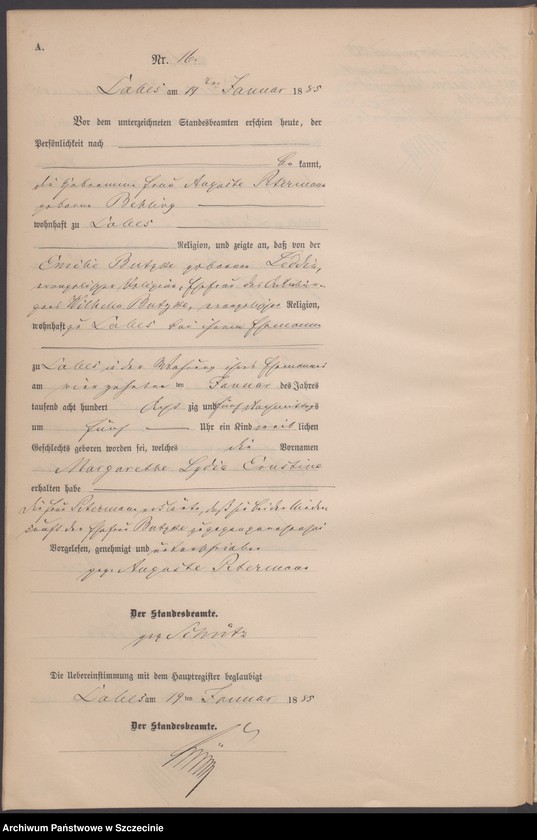 A.
Nr. 16.
Labes am 19ten Januar 1885
Vor dem unterzeichneten Standesbeamten erschien heute, der
Persönlichkeit nach
be kannt,
die Hebamme Frau Auguste Petermann
geborene Behling
wohnhaft zu Labes
Religion, und zeigte an, daß von der
Emilie Butzke geborenen
evangelischer Religion, Ehefrau des
Wilhelm Butzke, evangelischer Religion,
wohnhaft zu Labes bei ihrem Ehemann
zu Labes in der Wohnung ihres Ehemannes
am vierzehnten ten Januar des Jahres
tausend acht hundert acht zig und fünf Nachmittags
um fünf Uhr ein Kind weib lichen
Geschlechts geboren worden sei, welches die Vornamen
Margarethe Lydia Ernstine
erhalten habe
die Frau Petermann erklärte, daß sie bei der Nieder
kunft der Ehefrau Butzke zugegen gewesen sei
Vorgelesen, genehmigt und unterschrieben
gez. Auguste Petermann
Der Standesbeamte.
gez. Schütz
Die Uebereinstimmung mit dem Hauptregister beglaubigt
Labes am 19ten Januar 1885
Der Standesbeamte.
Archiwum Państwowe w Szczecinie